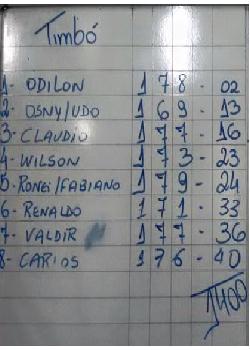 Timbó
1- ODILON 178-02
2- OSNY/UDO 169-13
3- CLAUDIO 177-16
4- WILSON 173-23
5- RONEI/FABIANO 179-24
6- RENALDO 171-33
7- VALDIR 177-36
8- CARLOS 176-40
1400